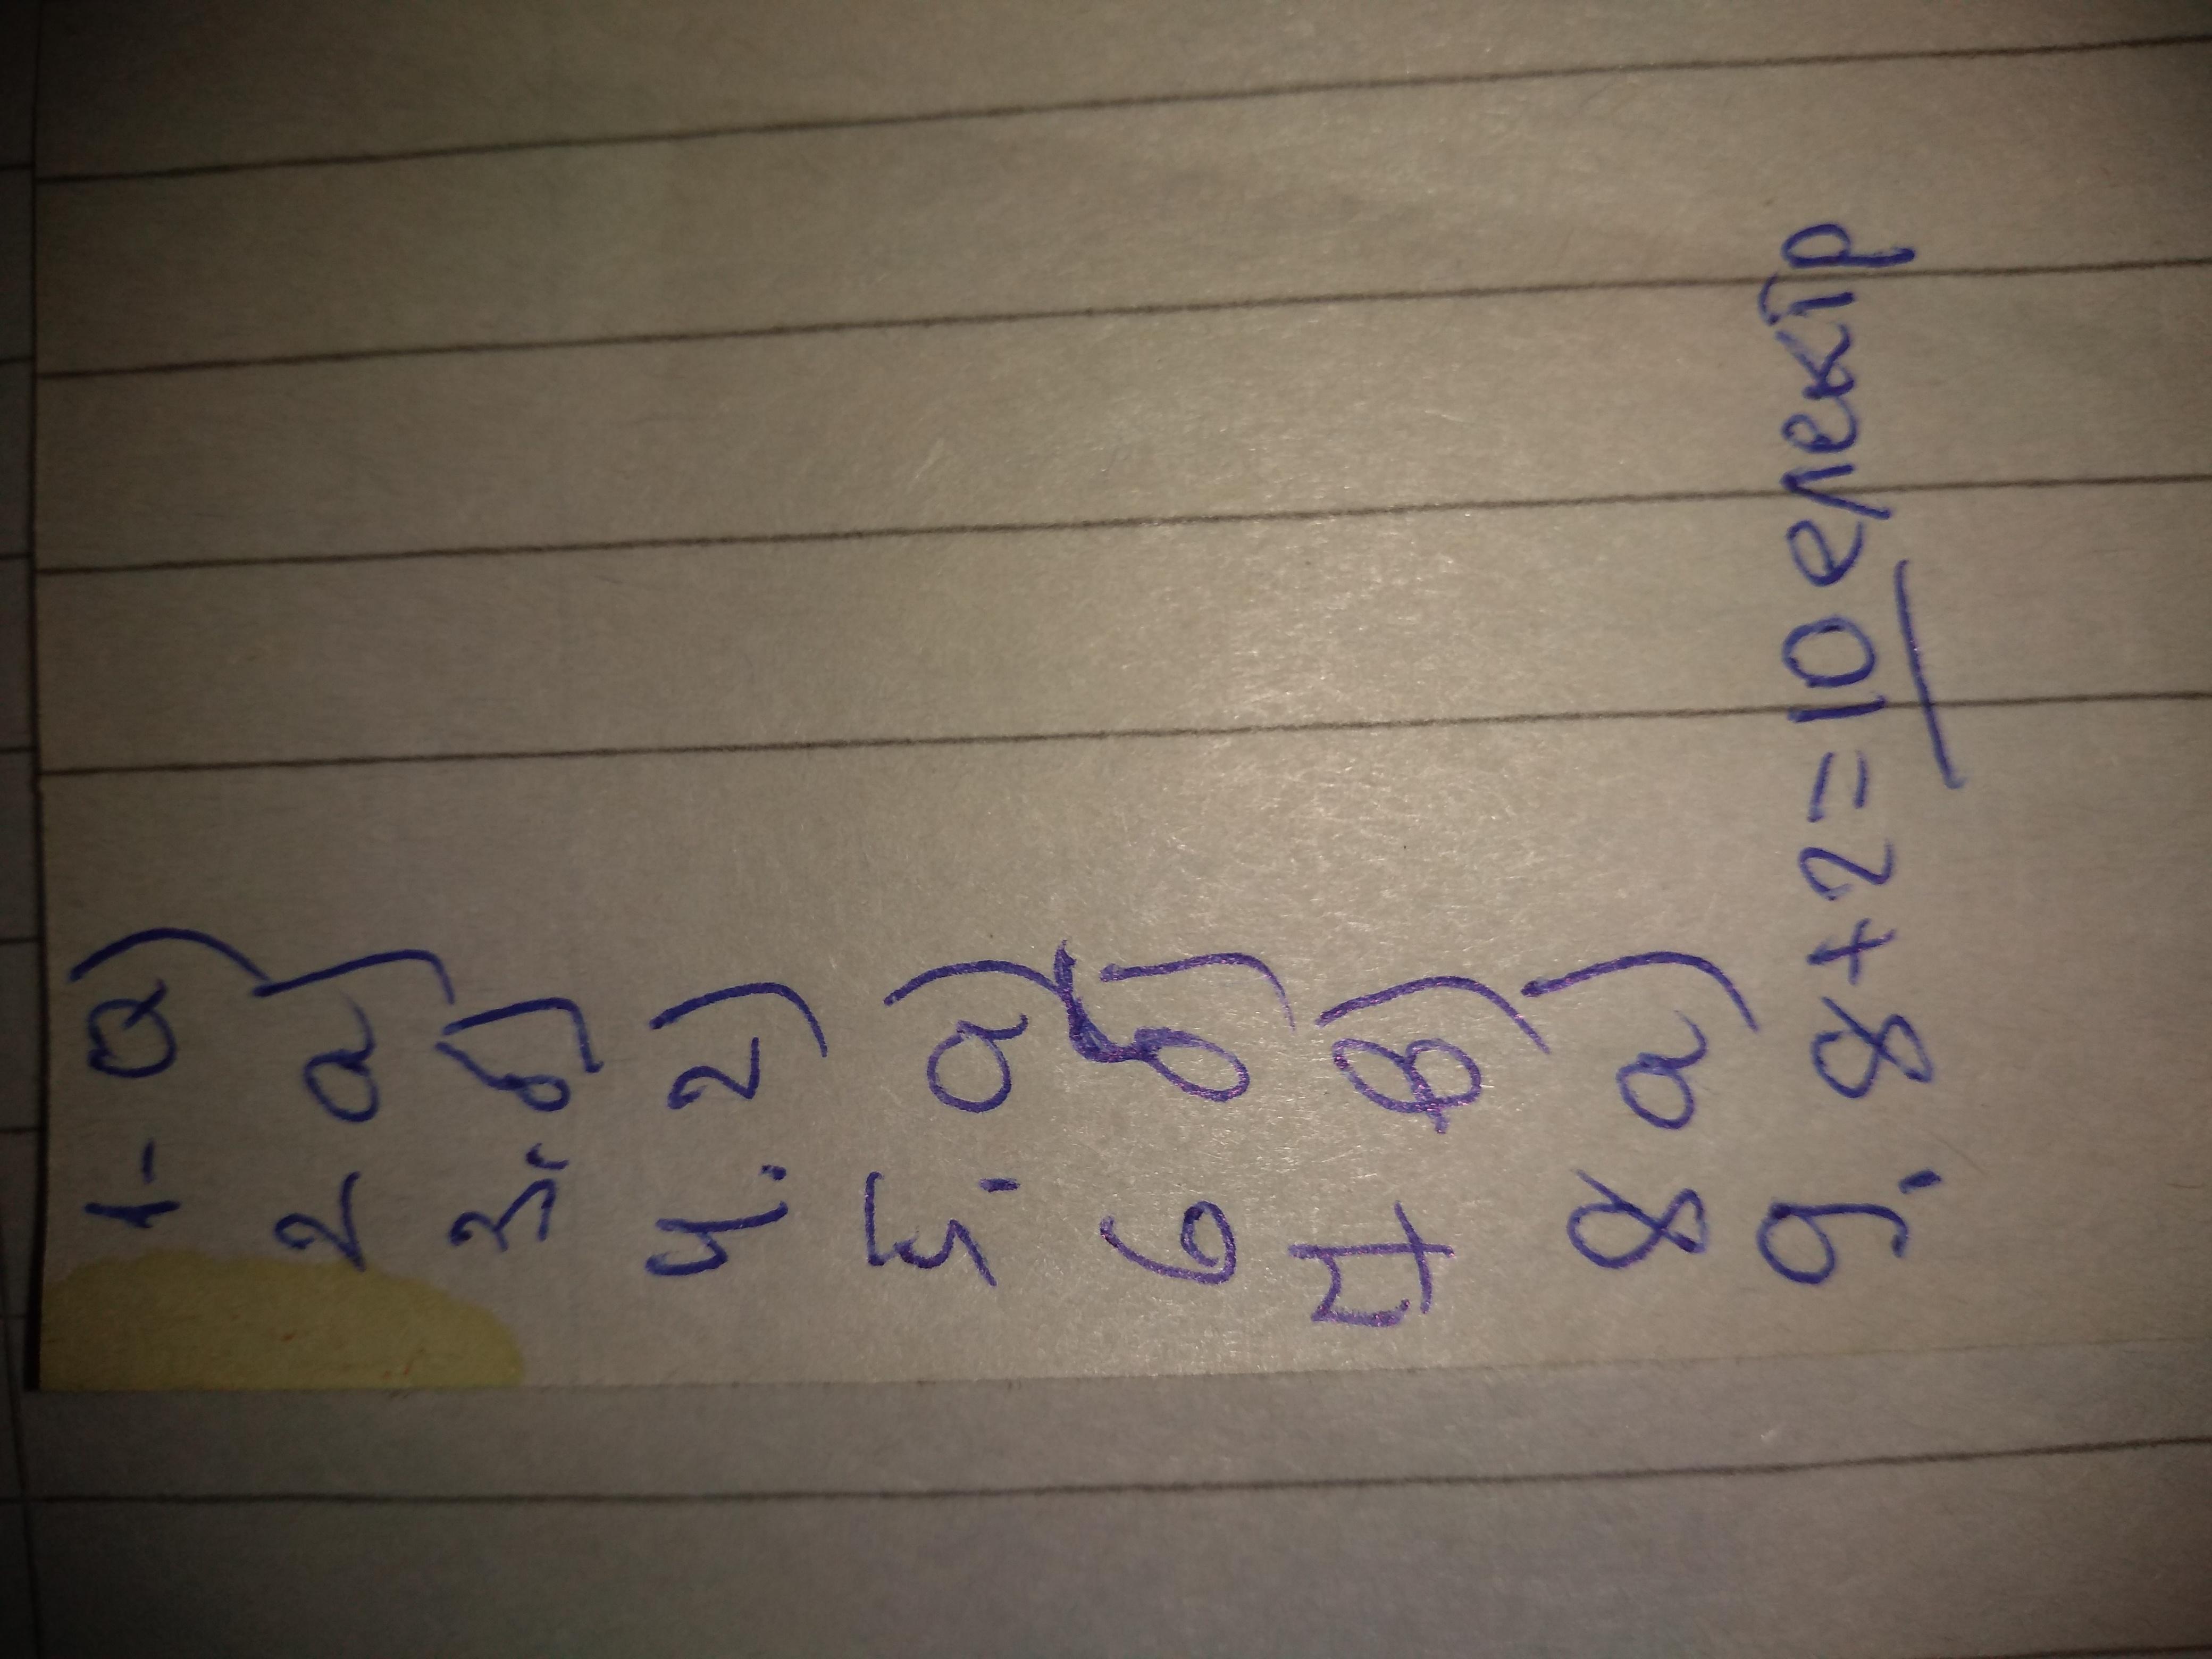 1- а)
2 а)
3. б)
4. г)
5. а)
6 б)
7 в)
8 а)
9. 8+2=10 електр